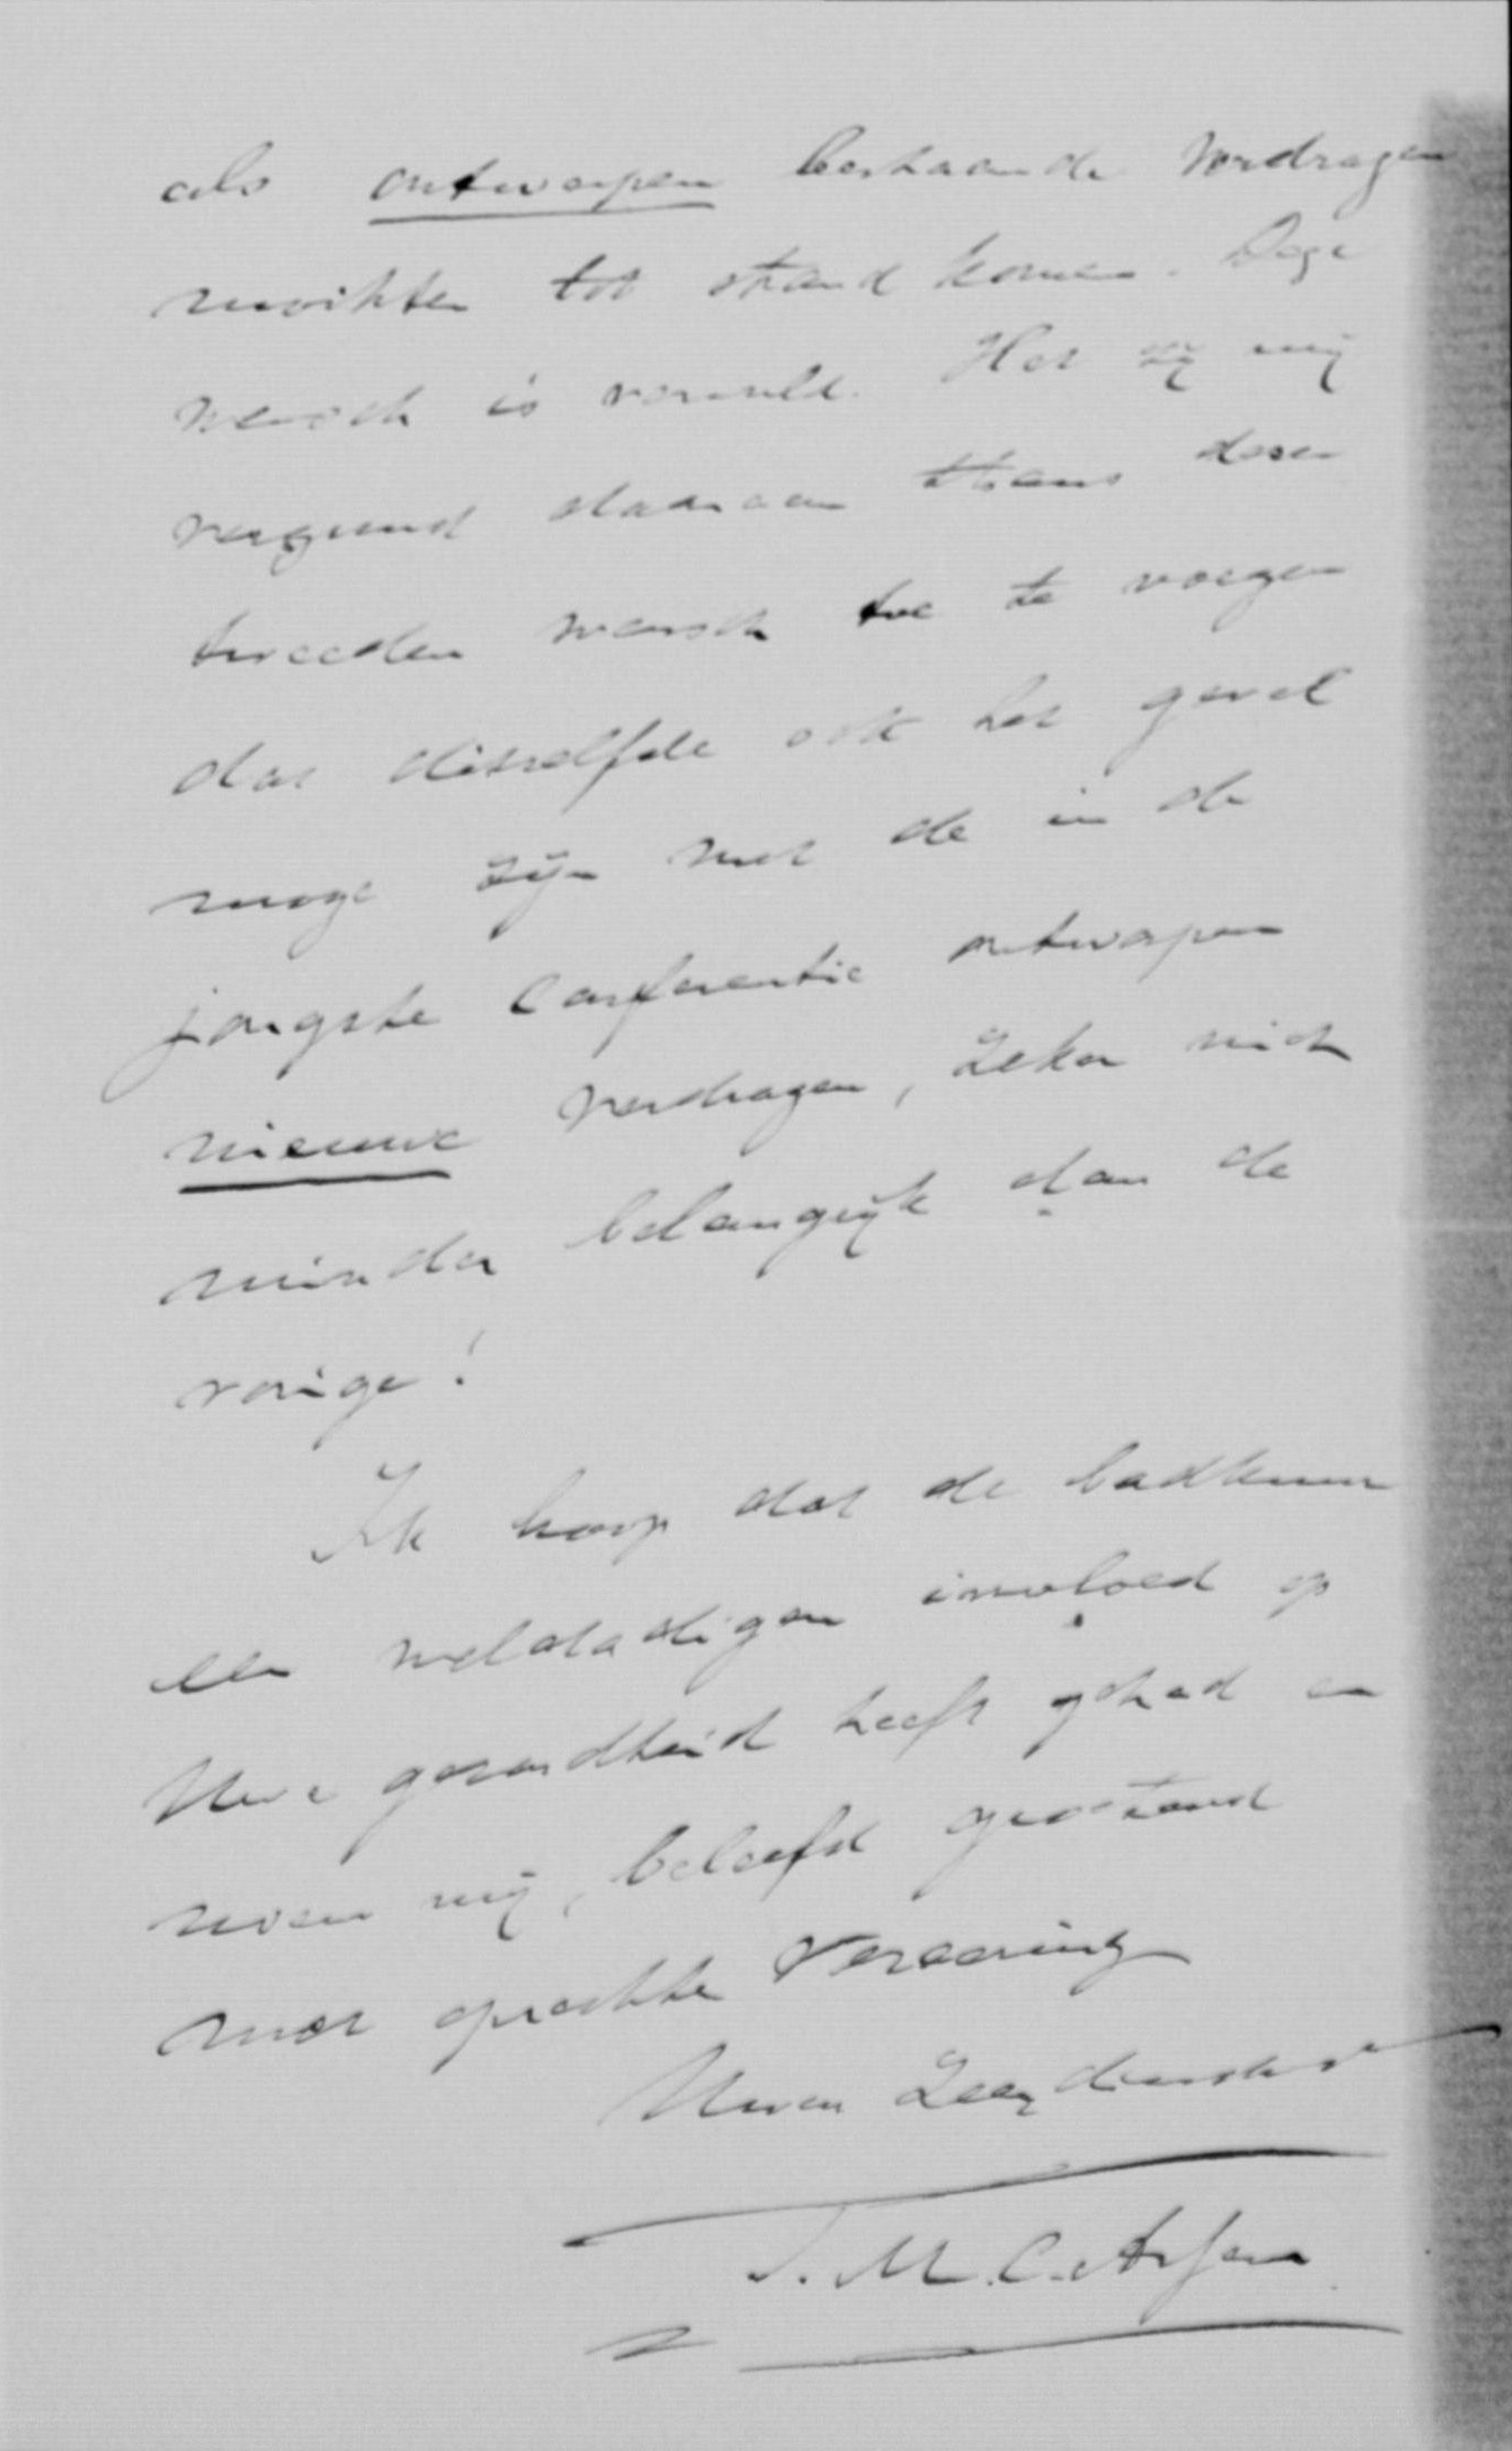 als ontwerpen bestaande verdragen
mochten tot stand komen. Deze
wensch is vervuld. Het zij mij
vergund daaraan thans dezen
tweeden wensch toe te voegen
dat ditzelfde ook het geval
moge zijn met de in de
jongste conferentie ontworpen
nieuwe verdragen, zeker niet
minder belangrijk dan de
vorige!
Ik hoop dat de badkuur
een weldadigen invloed op
Uwe gezondheid heeft gehad en
noem mij, beleefd groetend
met oprechte vereering
Uwen Zeer dienstw
T. M. C. Asser